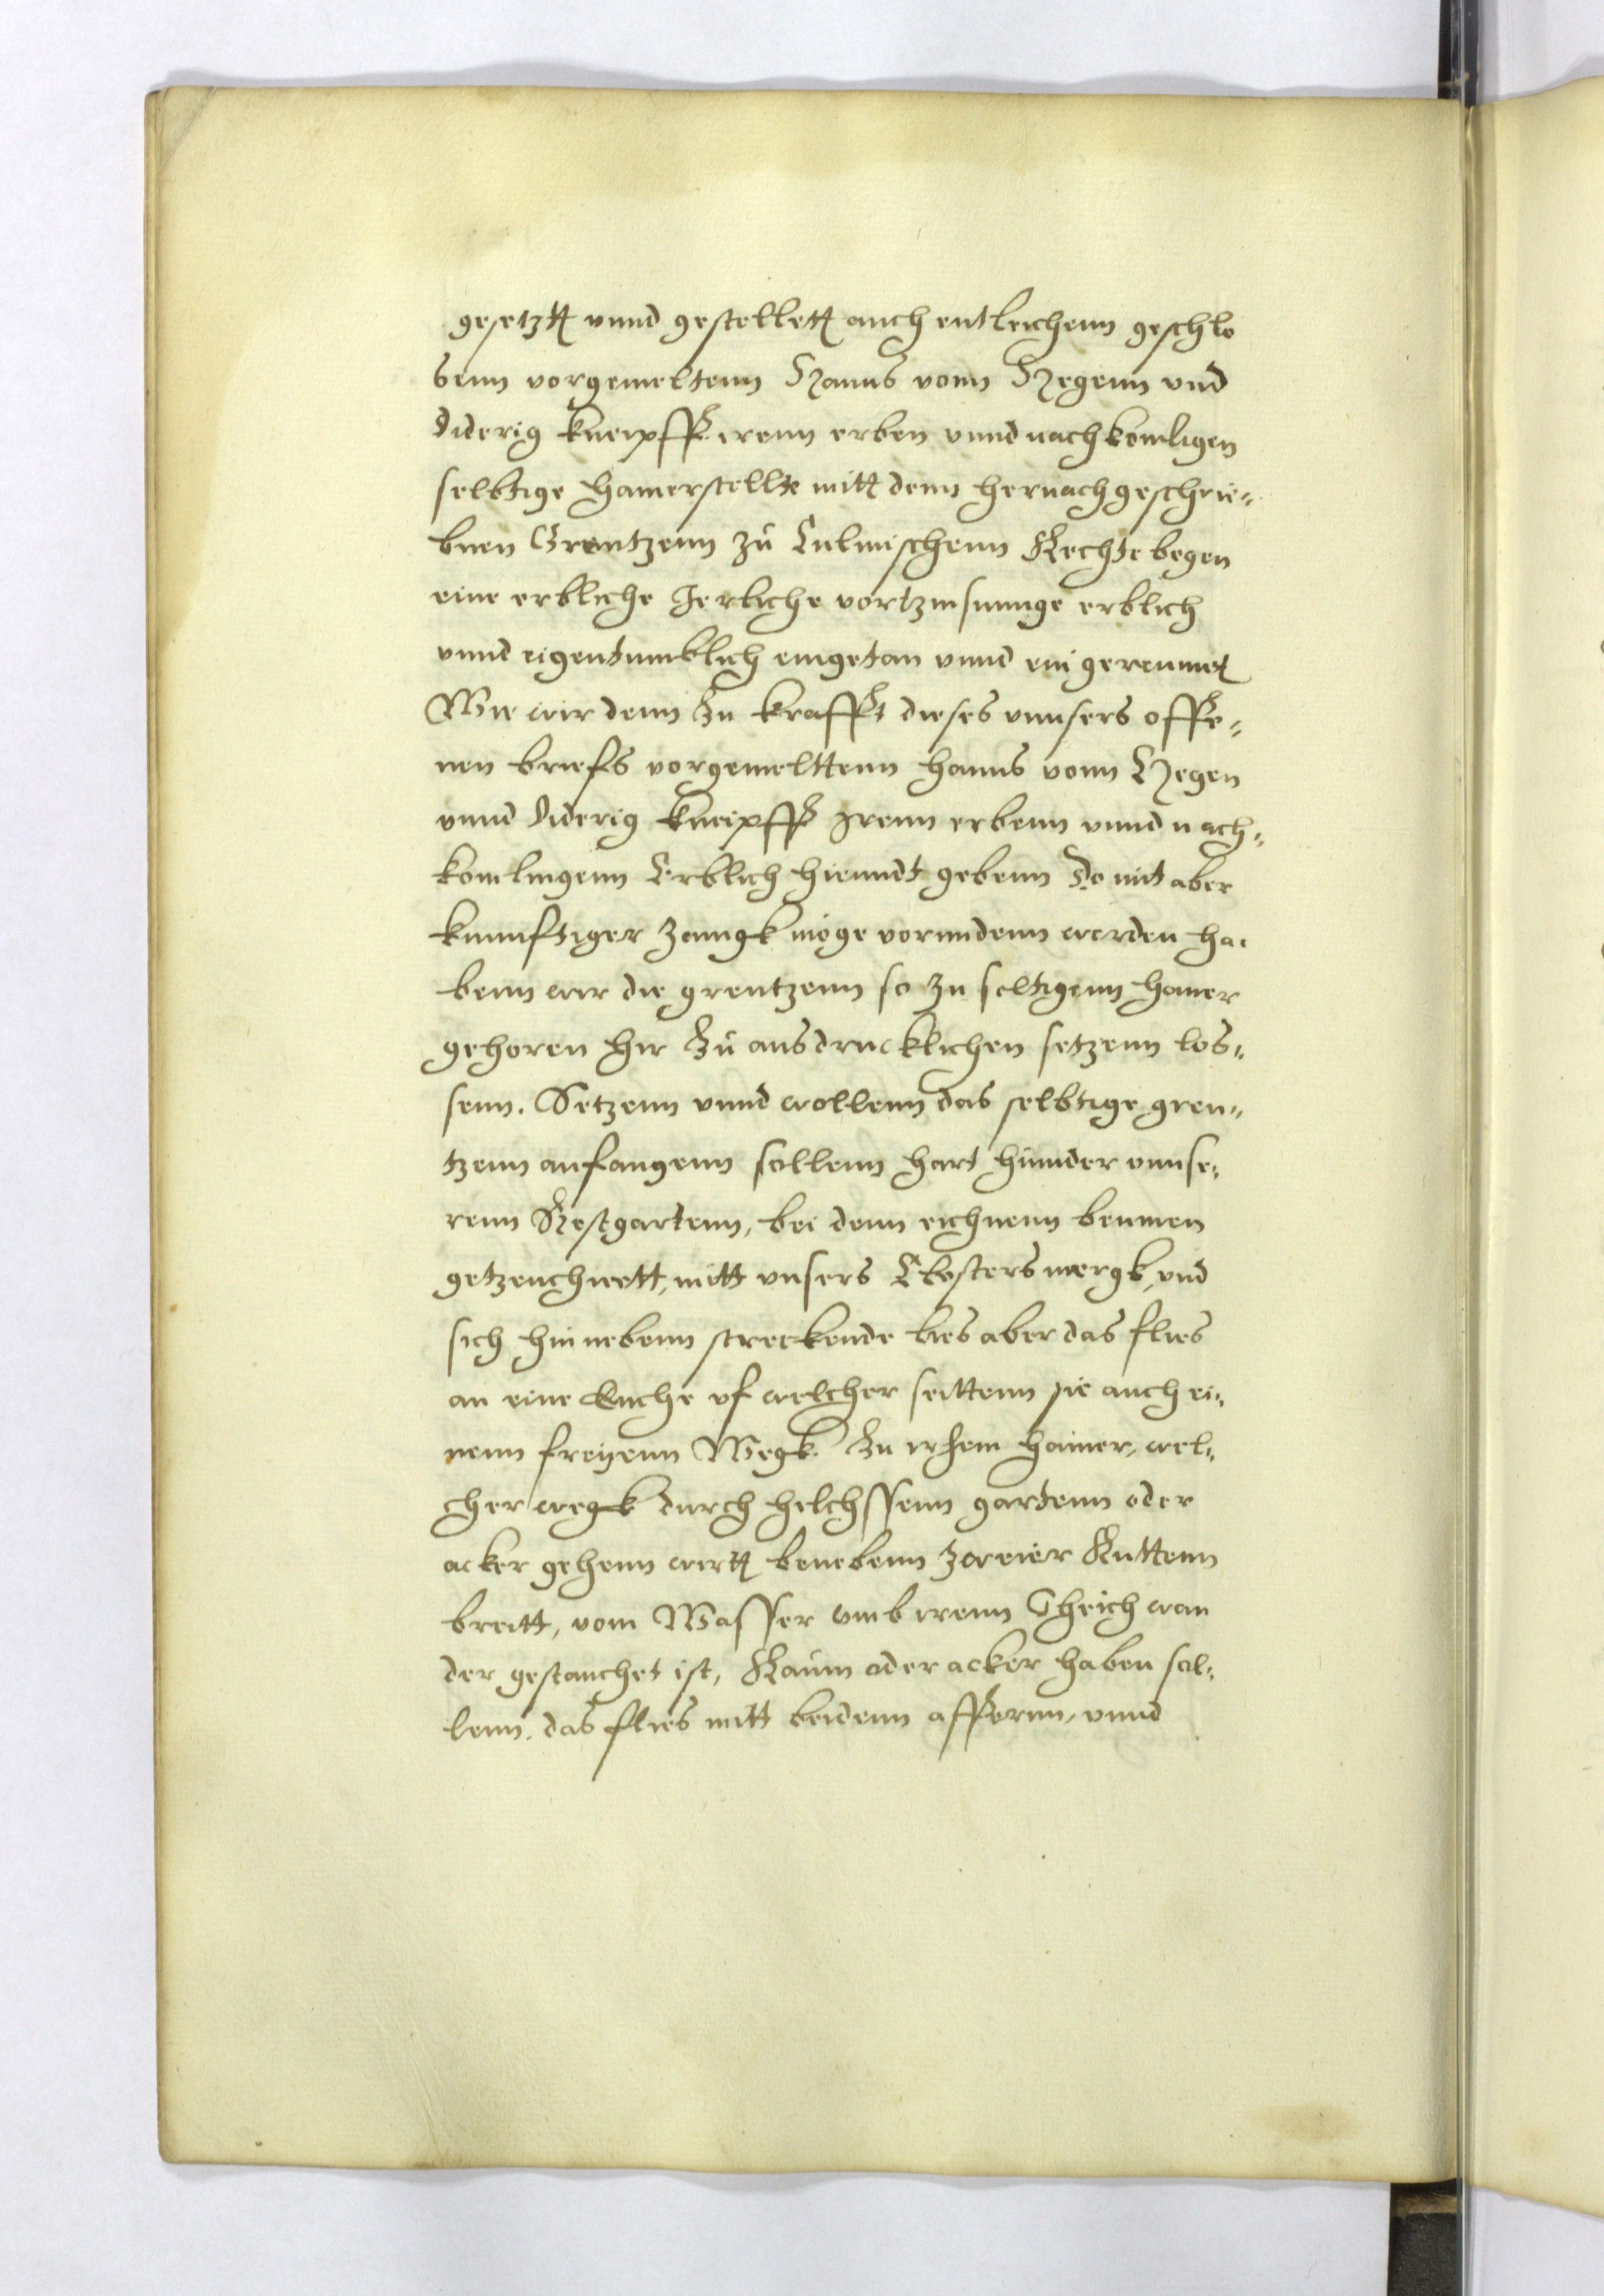 gesetztt vnnd gestellett auch entleichenn geschlo
senn vorgemeltenn Hanns vonn Hegenn vnd
diderig kneipff irenn erben vnnd nachkomligen
selbtige hamerstellte mitt denn hernachgeschrie-
bnen Grentzenn zu Culmischenn Rechte kegen
eine erbliche Jerliche vortzinsunnge erblich
vnnd eigentumblich eingetan vnnd eingereumet
Wie wir denn zu krafft dieses vnnsers offe-
nen briefs vorgemelttenn hanns vonn Hegen
vnnd Diderig kneipff Irenn erbenn vnnd nach-
komlingenn Erblich hiemidt gebenn Domit aber
kunnftiger zanngk möge vormidenn werden ha-
benn wir die grentzenn so zu seltigenn hamer
gehoren hir zu ausdrucklichen setzenn los-
senn. Setzenn vnnd wollenn das selbtige gren-
tzenn anfangenn sollenn hart hinnder vnnse-
renn Restgartenn, bei denn eichnenn beumen
getzeuchnett, mitt vnsers Closters mergk, vnd
sich hin nebenn streckende bies aber das flies
an eine Euche vf welcher seittenn sie auch ei-
nenn freyenn Wegk zu irhem hamer, wel-
cher wegk durch hilchssenn gartenn oder
acker gehenn wirtt benebenn zweier Ruttenn
breitt, vom Wasser vmb irenn Theich wan
der gestauchet ist, Raum oder acker haben sol-
lenn. das flies mitt beidenn affernn, vnnd